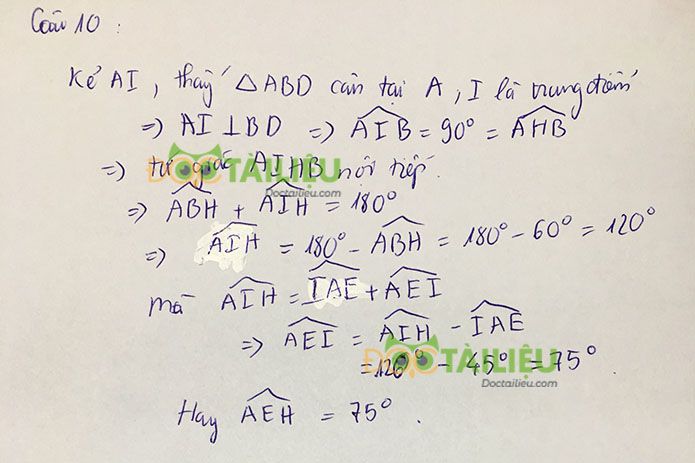 Câu 10 :
Kẻ AI, thấy △ABD cân tại A, I là trung điểm
=> AI ⊥ BD => \widehat{AIB} = 90° = \widehat{AHB}
=> tứ giác AIHB nội tiếp.
ĐỌCTÀILIỆU
Doctailieu.com
=> \widehat{ABH} + \widehat{AIH} = 180°
=> \widehat{AIH} = 180° - \widehat{ABH} = 180° - 60° = 120°
mà \widehat{AIH} = \widehat{IAE} + \widehat{AEI}
=> \widehat{AEI} = \widehat{AIH} - \widehat{IAE}
= 120° - 45° = 75°
ĐỌCTÀILIỆU
Doctailieu.com
Hay \widehat{AEH} = 75°.